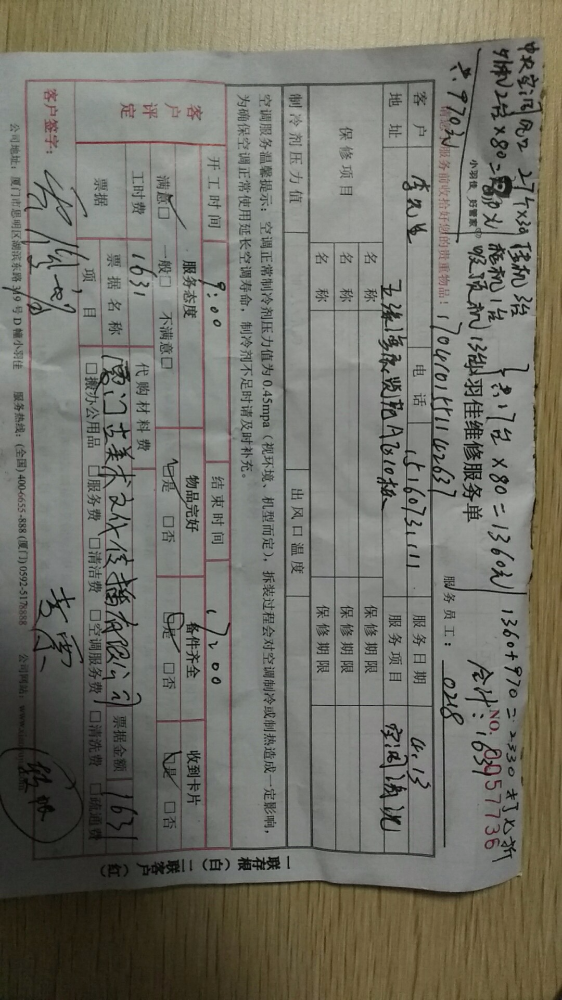 中央空调风口 27个×30
外机2台×80=
共:970元
挂机3台
柜机1台
吸顶机13台
共17台×80=1360元
1360+970=2330 打七折
合计:1631
小羽佳 好管家
小羽佳维修服务单
NO. 0057736
请您在服务前收拾好您的贵重物品!
服务员工: 0218
客户 李先生 电话 服务日期 4.13
地址 服务项目 空调清洗
保修项目 名称 保修期限
名称 保修期限
名称 保修期限
制冷剂压力值 出风口温度
空调服务温馨提示: 空调正常制冷剂压力值为 0.45mpa(视环境、机型而定), 拆装过程会对空调制冷或制热造成一定影响,
为确保空调正常使用延长空调寿命, 制冷剂不足时请及时补充。
开工时间 9:00 结束时间 17:00
客户评定 服务态度 物品完好 备件齐全 收到卡片
满意□ 一般□ 不满意□ □是 □否 □是 □否 □是 □否
工时费 1631 代购材料费
票据 票据名称 厦门古美术文化传播有限公司 票据金额 1631
项目 □搬办公用品 □服务费 □清洁费 □空调服务费 □清洗费 □疏通费
客户签字:
公司地址: 厦门市思明区湖滨东路 319 号 D 幢小羽佳 服务热线: (全国) 400-6655-888 (厦门) 0592-5178888 公司网站: www.
一联存根(白) 二联客户(红)